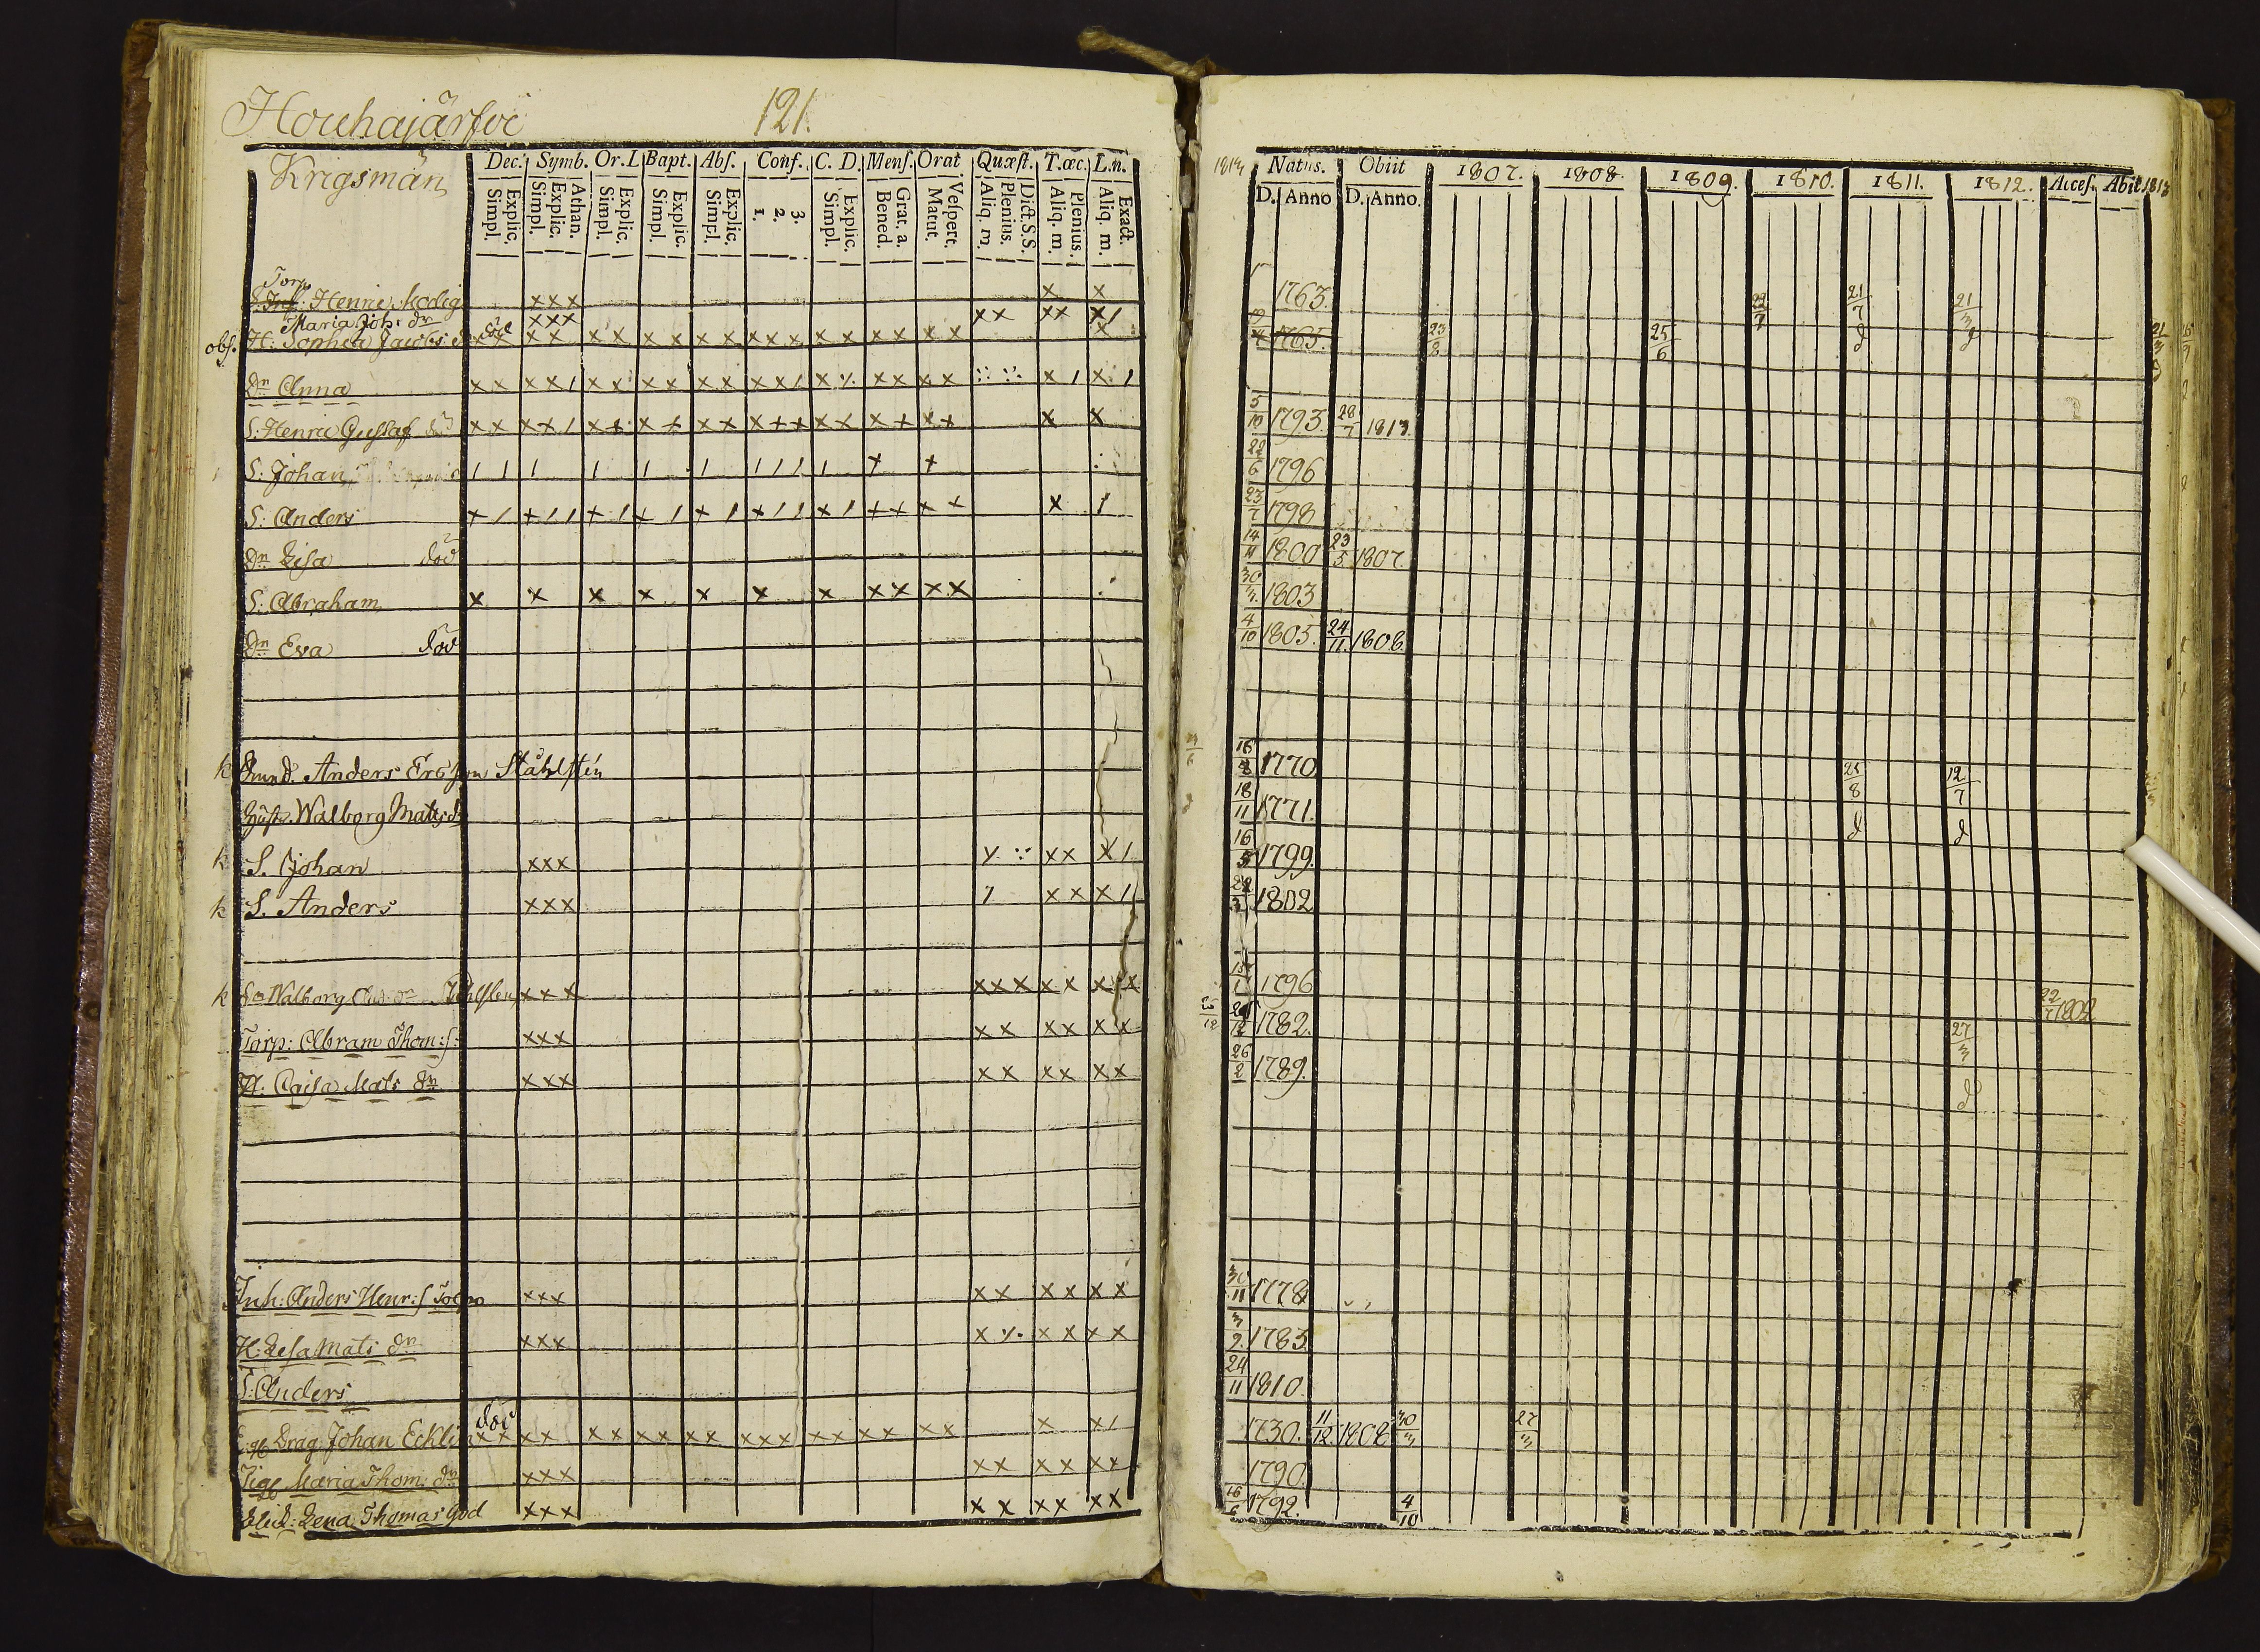 Houhajärfvi 121.
Krigsmän
Dec. Symb. Or. I. Bapt. Abſ. Conf. C. D. Menſ. Orat Quæſt. T.œc. L.n.
Explic. Simpl. Athan. Explic. Simpl. Explic. Simpl. Explic. Simpl. Explic. Simpl. 3. 2. 1. Explic. Simpl. Grat. a. Bened. Veſpert. Matut. Dict. S.S. Plenius. Aliq. m. Plenius. Aliq. m. Exact. Aliq. m.
1814 Natus. Obiit 1807. 1808. 1809. 1810. 1811. 1812. Acceſ. Abit. 1813
D. Anno D. Anno.
Torp
Henric Modig xxx x x 1763. 21/7 21/3
Maria Joh: dr xxx xx xx x/
obſ. H: Sophia Jacobs d död xx xx xx xx xx xxx xx xx xx x 1765 23/8 25/6 d d
Dr Anna xx xx/ xx xx xx xx/ x xx xx x/ x/
S: Henric Gustaf död xx xx/ xx xx xx xxx xx xx xx x x 5/10 1793. 28/7 1813.
S: Johan / / / / / / /// / x x 22/6 1796
S: Anders x/ x// x/ x/ x/ x// x/ xx xx x / 23/7 1798
Dr Lisa död 14/11 1800 23/5 1807.
S: Abraham x x x x x x x xx xx 1803
Dr Eva död 4/10 1805. 24/11 1808
k Anders Ersson Ståhlsten 16/8 1770 25/8 12/7
Hust. Walborg Matts dr 18/11 1771. d d
k S. Johan xxx xx x/ 16/5 1799.
k S. Anders xxx xx x/ 1802
k Walborg xxx xxx xx xx 1796
Torp: Abram Thom: ſ xxx xx xx xx 25/12 1782. 27/3 22/7 1802
H: Caisa Mats dr xxx xx xx xx 26/2 1789. d
Inh: Anders Henr: ſ Torpo xxx xx xx xx 30/11 1778
H: Lisa Mats dr xxx xx xx 3/2 1783
S: Anders 24/11 1810.
Drag Johan Ecklin död xx xx xx xx xx xxx xx xx xx x x/ 1730. 11/12 1808 30/3 27/3
Maria Thom: dr xxx xx xx xx 1790.
Lena Thomas xxx xx xx xx 1792. 4/10